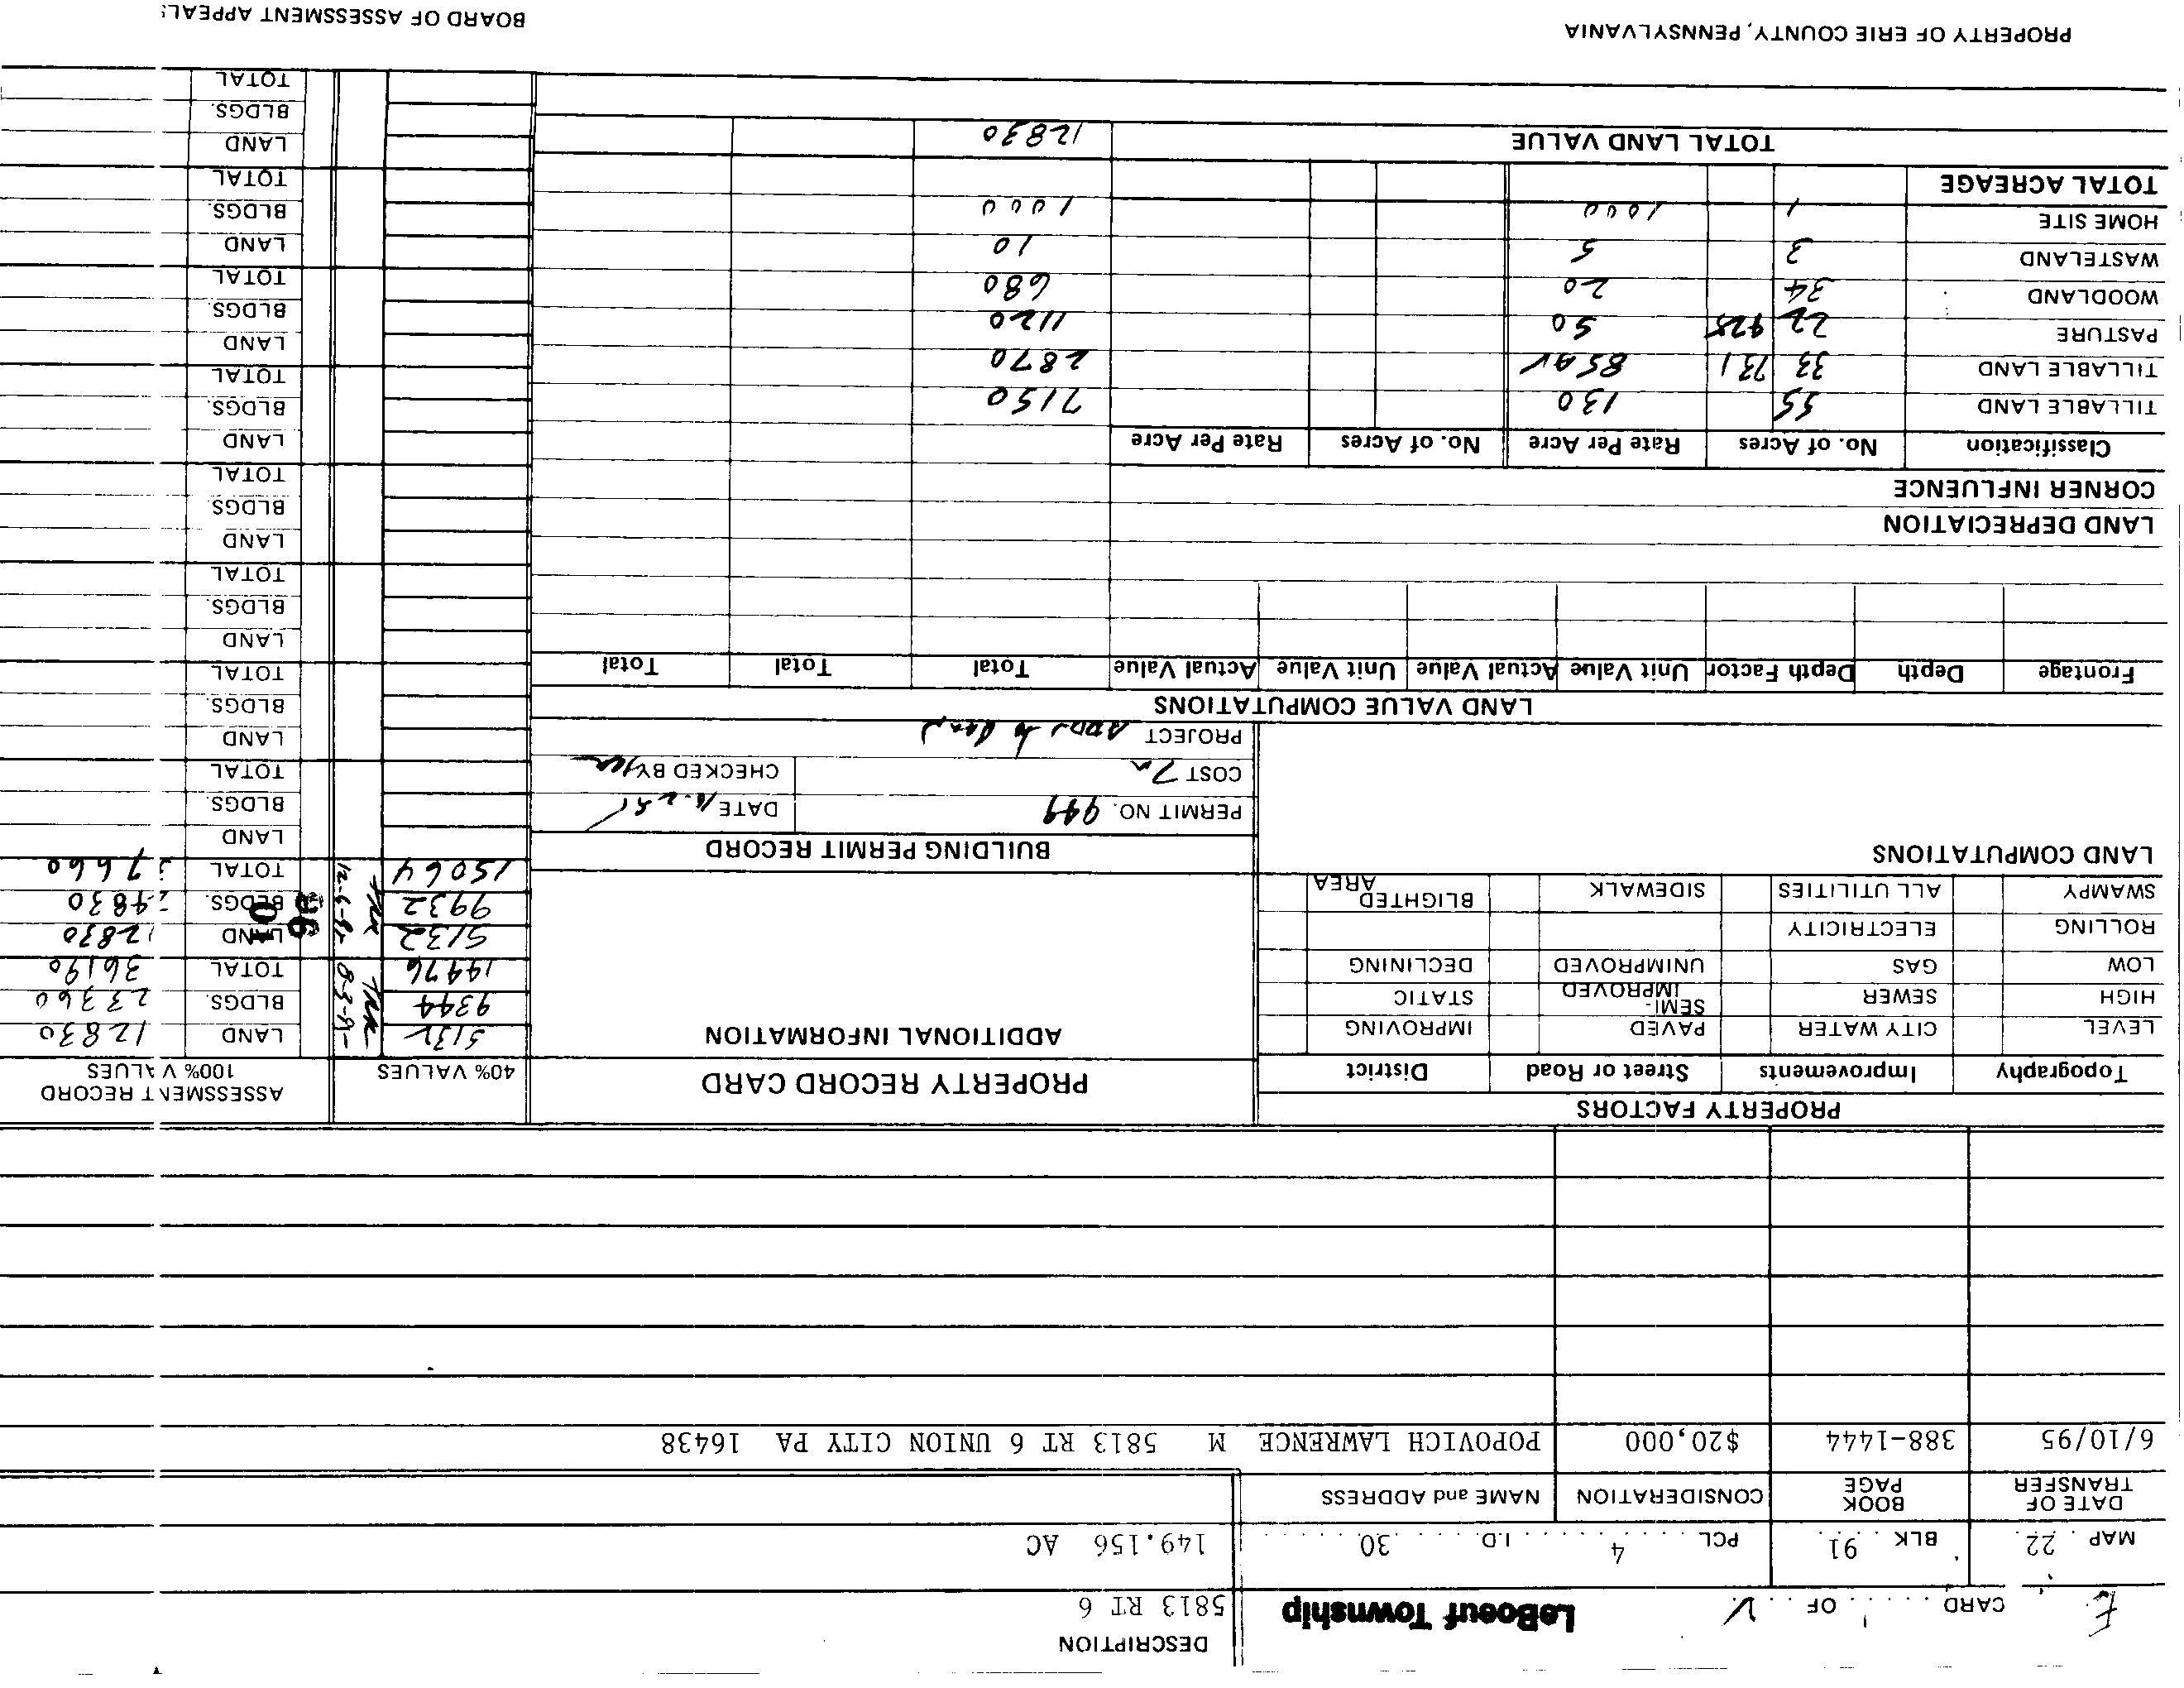 DESCRIPTION
CARD OF LeBoeuf Township 5813 RT 6
MAP 22 BLK 91 PCL 4 I.D. 30 149.156 AC
DATE OF TRANSFER BOOK PAGE CONSIDERATION NAME and ADDRESS
6/10/95 388-1444 $20,000 POPOVICH LAWRENCE M 5813 RT 6 UNION CITY PA 16438
PROPERTY FACTORS
Topography Improvements Street or Road District
LEVEL CITY WATER PAVED IMPROVING
HIGH SEWER SEMI-IMPROVED STATIC
LOW GAS UNIMPROVED DECLINING
ROLLING ELECTRICITY
SWAMPY ALL UTILITIES SIDEWALK BLIGHTED AREA
LAND COMPUTATIONS
PROPERTY RECORD CARD
ADDITIONAL INFORMATION
BUILDING PERMIT RECORD
PERMIT NO. 949 DATE
COST CHECKED BY
PROJECT
40% VALUES ASSESSMENT RECORD 100% VALUES
5132 LAND 12830
9344 BLDGS. 23360
14476 TOTAL 36190
5132 LAND 12830
9932 BLDGS. 24830
15064 TOTAL 37660
98
01
LAND
BLDGS.
TOTAL
LAND
BLDGS.
TOTAL
LAND
BLDGS.
TOTAL
LAND
BLDGS.
TOTAL
LAND
BLDGS.
TOTAL
LAND
BLDGS.
TOTAL
LAND
BLDGS.
TOTAL
LAND
BLDGS.
TOTAL
LAND VALUE COMPUTATIONS
Frontage Depth Depth Factor Unit Value Actual Value Unit Value Actual Value Total Total Total
LAND DEPRECIATION
CORNER INFLUENCE
Classification No. of Acres Rate Per Acre No. of Acres Rate Per Acre
TILLABLE LAND 55 130 7150
TILLABLE LAND 33 731 85 av 2870
PASTURE 22 425 50 1120
WOODLAND 34 20 680
WASTELAND 3 5 10
HOME SITE 1 1000 1000
TOTAL ACREAGE
TOTAL LAND VALUE 12830
PROPERTY OF ERIE COUNTY, PENNSYLVANIA BOARD OF ASSESSMENT APPEALS